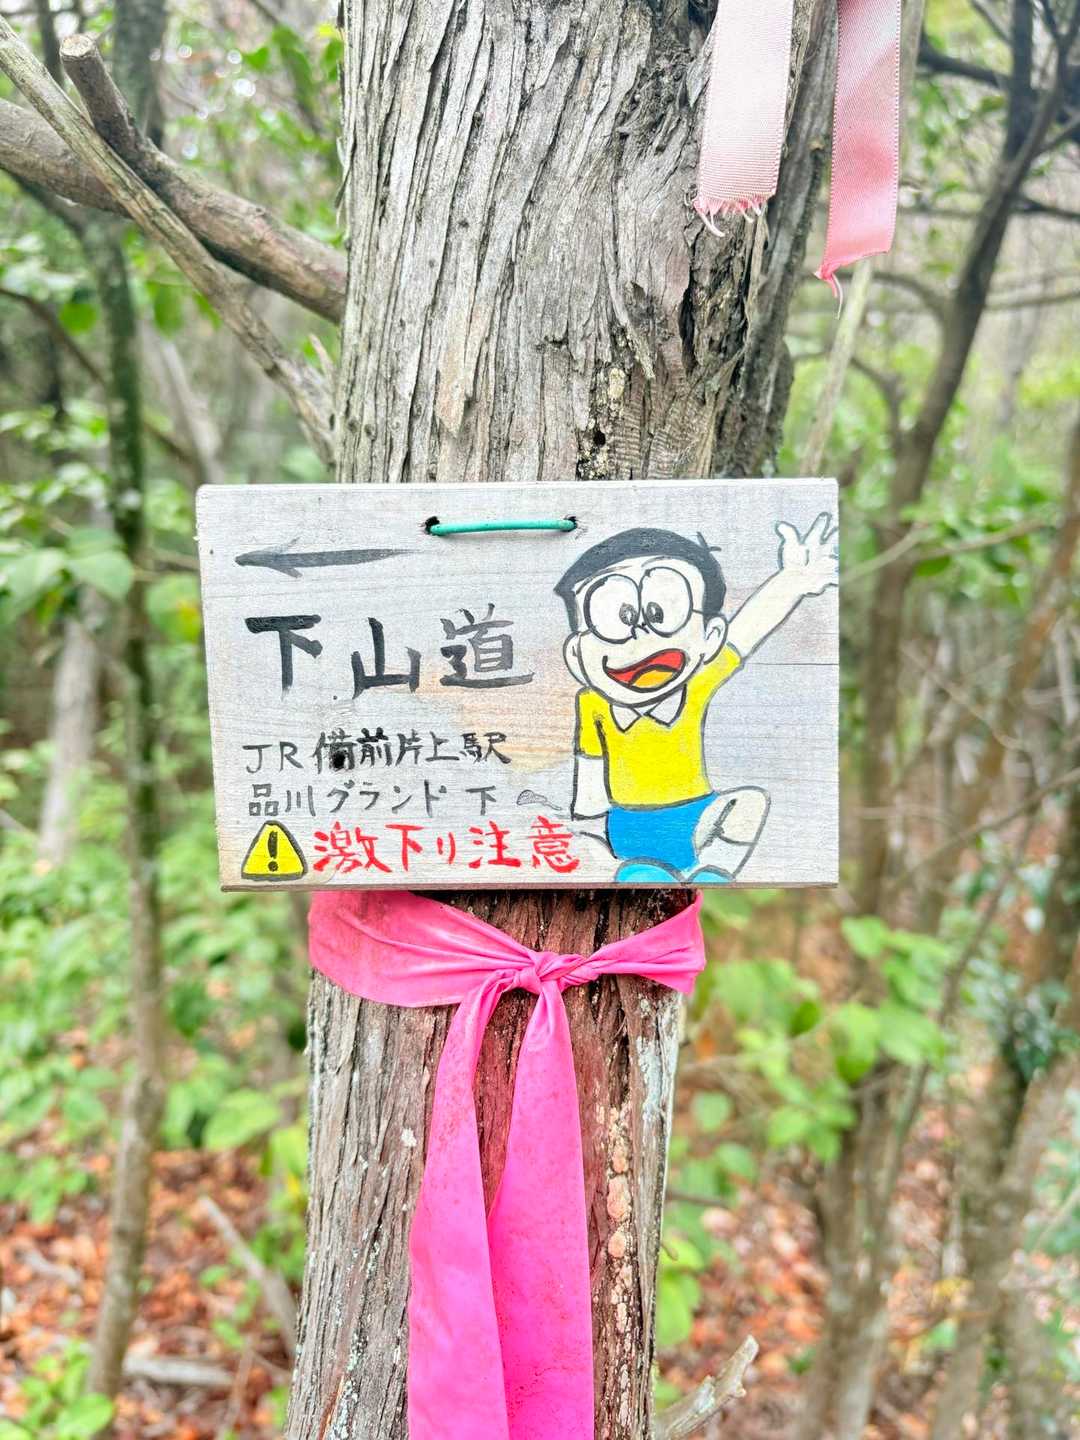 下山道
JR備前片上駅
品川グランド下
激下り注意